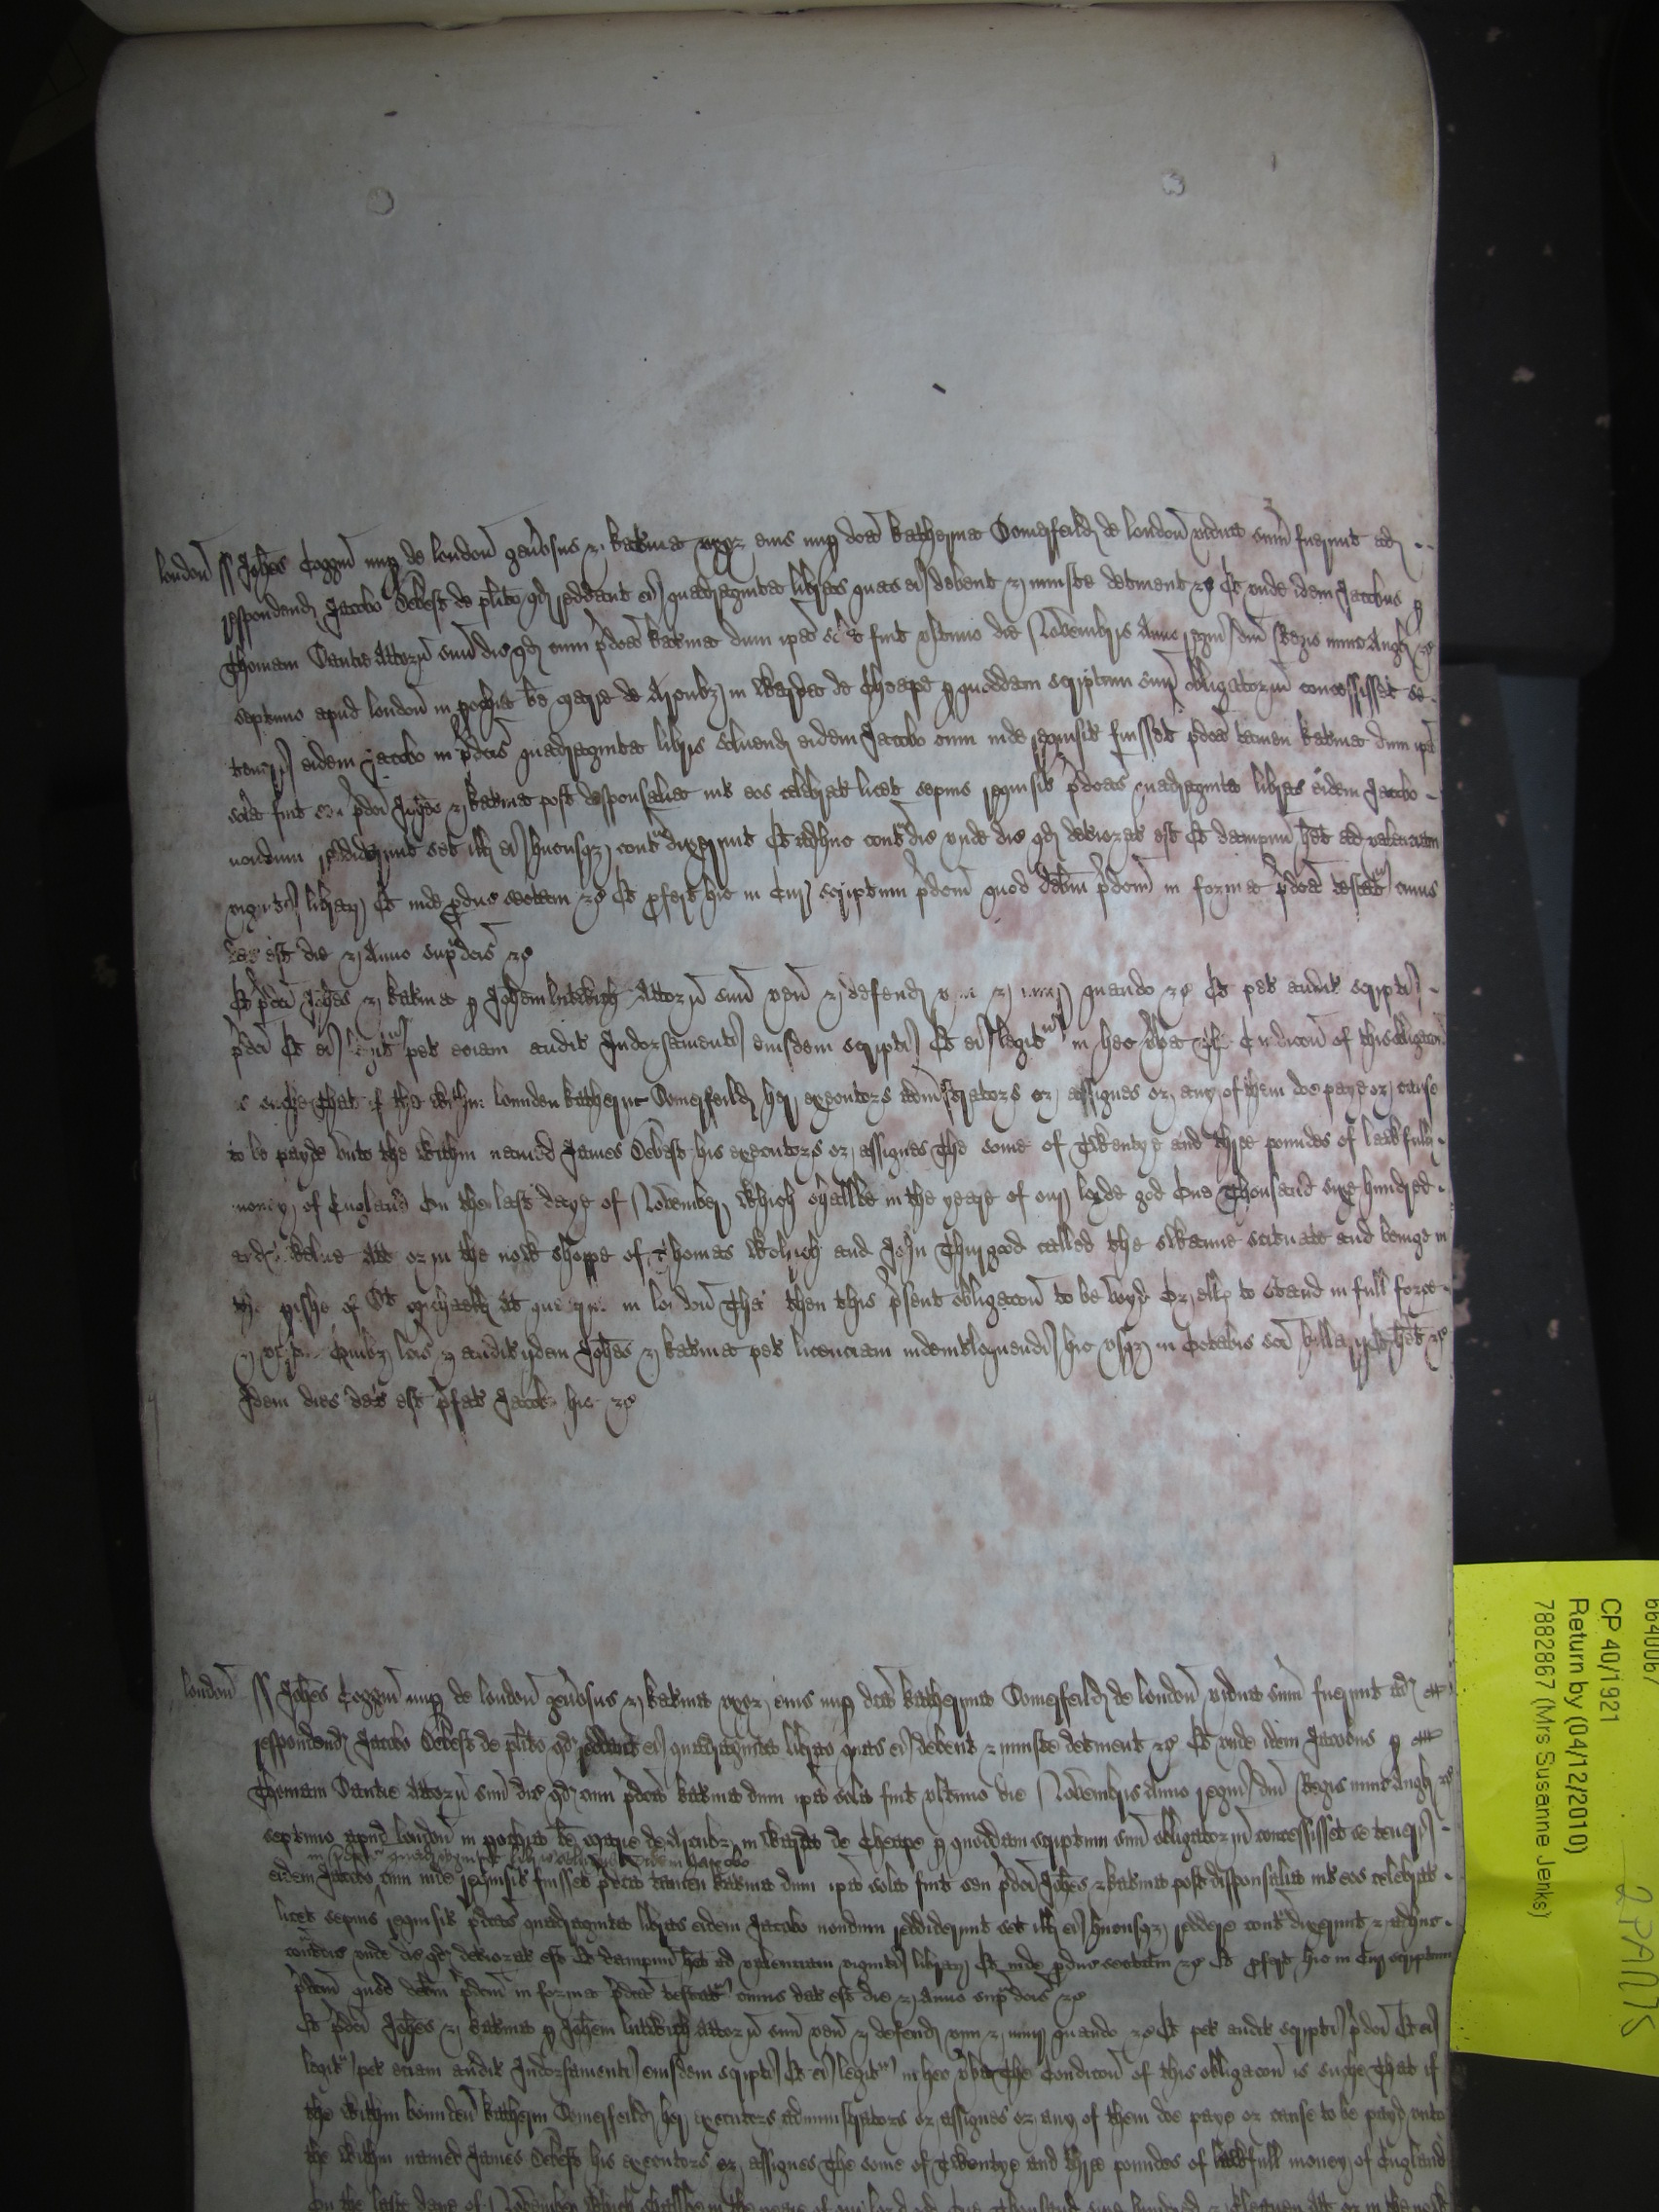 london ss Johes Coggin nup de london gen'osus & kat'ina uxor eius nup dca katherina Somerfeild de london vidua sum fuerunt ad
respondend Jacobo Debest de plito qd reddant ei quadraginta libras quas ei debent & iniuste detinent &c Et unde idem Jacobus p
Thomam attorn suu dic qd cum pdca kat'ina dum ipa sola fuit ultimo die Novembris Anno regni dni Regis nunc Angl &c
septimo apud london in pochia be marie de Arcubz in warda de Cheape p quoddam scriptum suu obligatoriu concessisset se
teneri eidem Jacobo in pdcis quadraginta libris solvend eidem Jacobo cum inde requisit fuisset pdca tamen kat'ina dum ipa
sola fuit seu pdci Johes & kat'ina post disponsalia int eos celebrat licet sepius requisit pdcas quadraginta libras eidem Jacobo
nondum reddiderunt set ill ei hucusqz contradixerunt Et adhuc contradic unde dic qd deteriorat est Et dampnu het ad valenciam
viginti librar Et inde produc sectam &c Et profert hic in Cur scriptum pdcm quod debitu pdcm in forma pdca testat cuius
dat est die & Anno supradcis &c
Et pdci Johes & kat'ina p Johem lutwich Attorn suu ven & defend quando &c Et pet audit scripti
pdci Et ei legit pet eciam audit Indorsamenti eiusdem scripti Et ei legit in hec verba The Condicon of this obligacon
is suche That if the within bounden katherin Somerfeild her executors administrators or assignes or any of them doe paye or cause
to be payde unto the within named James Debest his executors or assignes The some of Twentye and three poundes of lawfull
money of England On the last daye of November Which shalbe in the yeare of our lorde god One Thousand sixe hundred
and att or in the now shoppe of Thomas and John Thurgood called the swanne scituate and beinge in
the pishe of St michaell at in london That then this present obligacon to be voyd Or ells to stand in full force
Quibz lcis & audit ijdem Johes & kat'ina pet licenciam inde interloquendi hic usqz in Octabis sci hillarij Et hent &c
Idem dies dat est pfat Jacobo hic &c
london ss Johes Coggin nup de london gen'osus & kat'ina uxor eius nup dca katherina Somerfeild de london vidua sum fuerunt ad
respondend Jacobo Debest de plito qd reddant ei quadraginta libras quas ei debent & iniuste detinent &c Et unde idem Jacobus p
Thomam attorn suu dic qd cum pdca kat'ina dum ipa sola fuit ultimo die Novembris Anno regni dni Regis nunc Angl &c
septimo apud london in pochia be marie de Arcubz in warda de Cheape p quoddam scriptum suu obligatoriu concessisset se teneri
in pdcis quadraginta libris solvend eidem Jacobo
eidem Jacobo cum inde requisit fuisset pdca tamen kat'ina dum ipa sola fuit seu pdci Johes & kat'ina post disponsalia int eos celebrat
licet sepius requisit pdcas quadraginta libras eidem Jacobo nondum reddiderunt set ill ei hucusqz reddere contradixerunt & adhuc
contradic unde dic qd deteriorat est Et dampnu het ad valenciam viginti librar Et inde produc sectam &c Et profert hic in Cur scriptum
pdcm quod debitu pdcm in forma pdca testat cuius dat est die & Anno supradcis &c
Et pdci Johes & kat'ina p Johem lutwich attorn suu ven & defend vim & iniur quando &c Et pet audit scripti pdci Et ei
legit pet eciam audit Indorsamenti eiusdem scripti Et ei legit in hec verba The Condicon of this obligacon is suche That if
the within bounden katherin Somerfeild her executors administrators or assignes or any of them doe paye or cause to be payd unto
the within named James Debest his executors or assignes The some of Twentye and three poundes of lawfull money of England
On the laste daye of November Which shalbe in the yeare of our lord god One Thousand sixe hundred & att or in the now
6640067
CP 40/1921
Return by (04/12/2010)
7882867 (Mrs Susanne Jenks)
2 PARTS